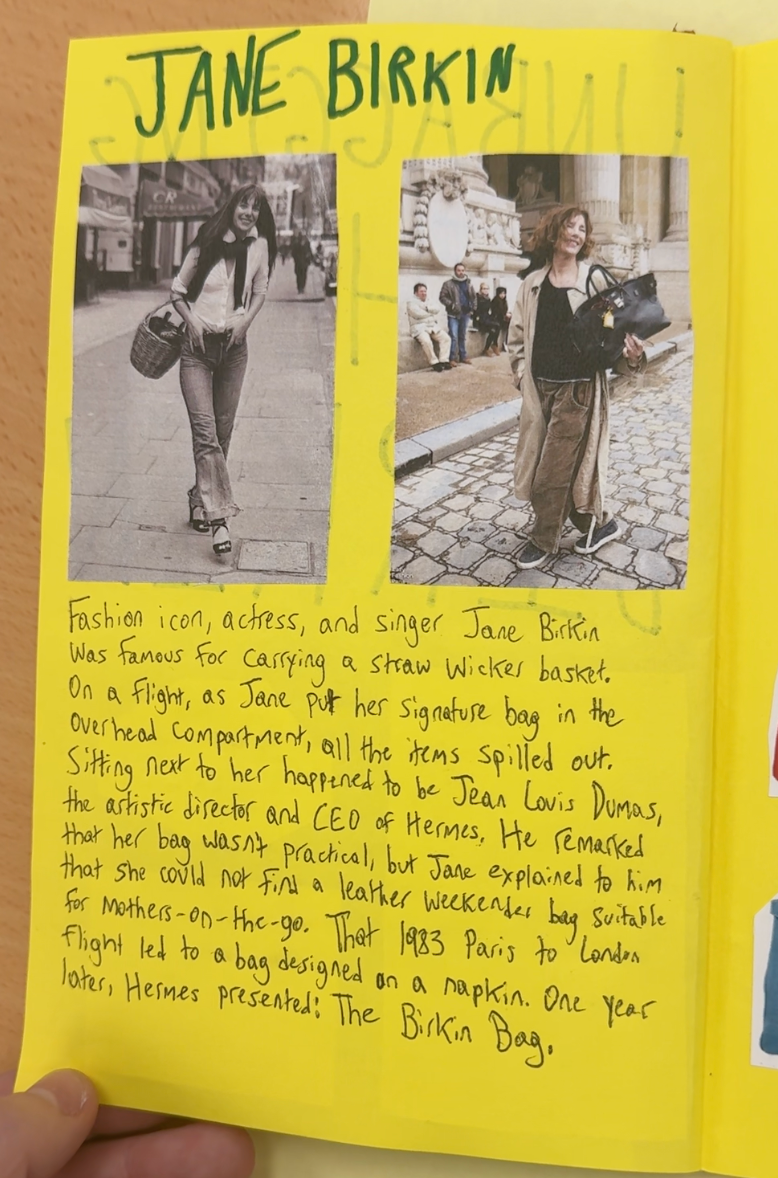 JANE BIRKIN
Fashion icon, actress, and singer Jane Birkin
was famous for carrying a straw wicker basket.
On a flight, as Jane put her signature bag in the
overhead compartment, all the items spilled out.
Sitting next to her happened to be Jean Louis Dumas,
the artistic director and CEO of Hermes. He remarked
that her bag wasn't practical, but Jane explained to him
that she could not find a leather weekender bag suitable
for mothers-on-the-go. That 1983 Paris to London
flight led to a bag designed on a napkin. One year
later, Hermes presented: The Birkin Bag.